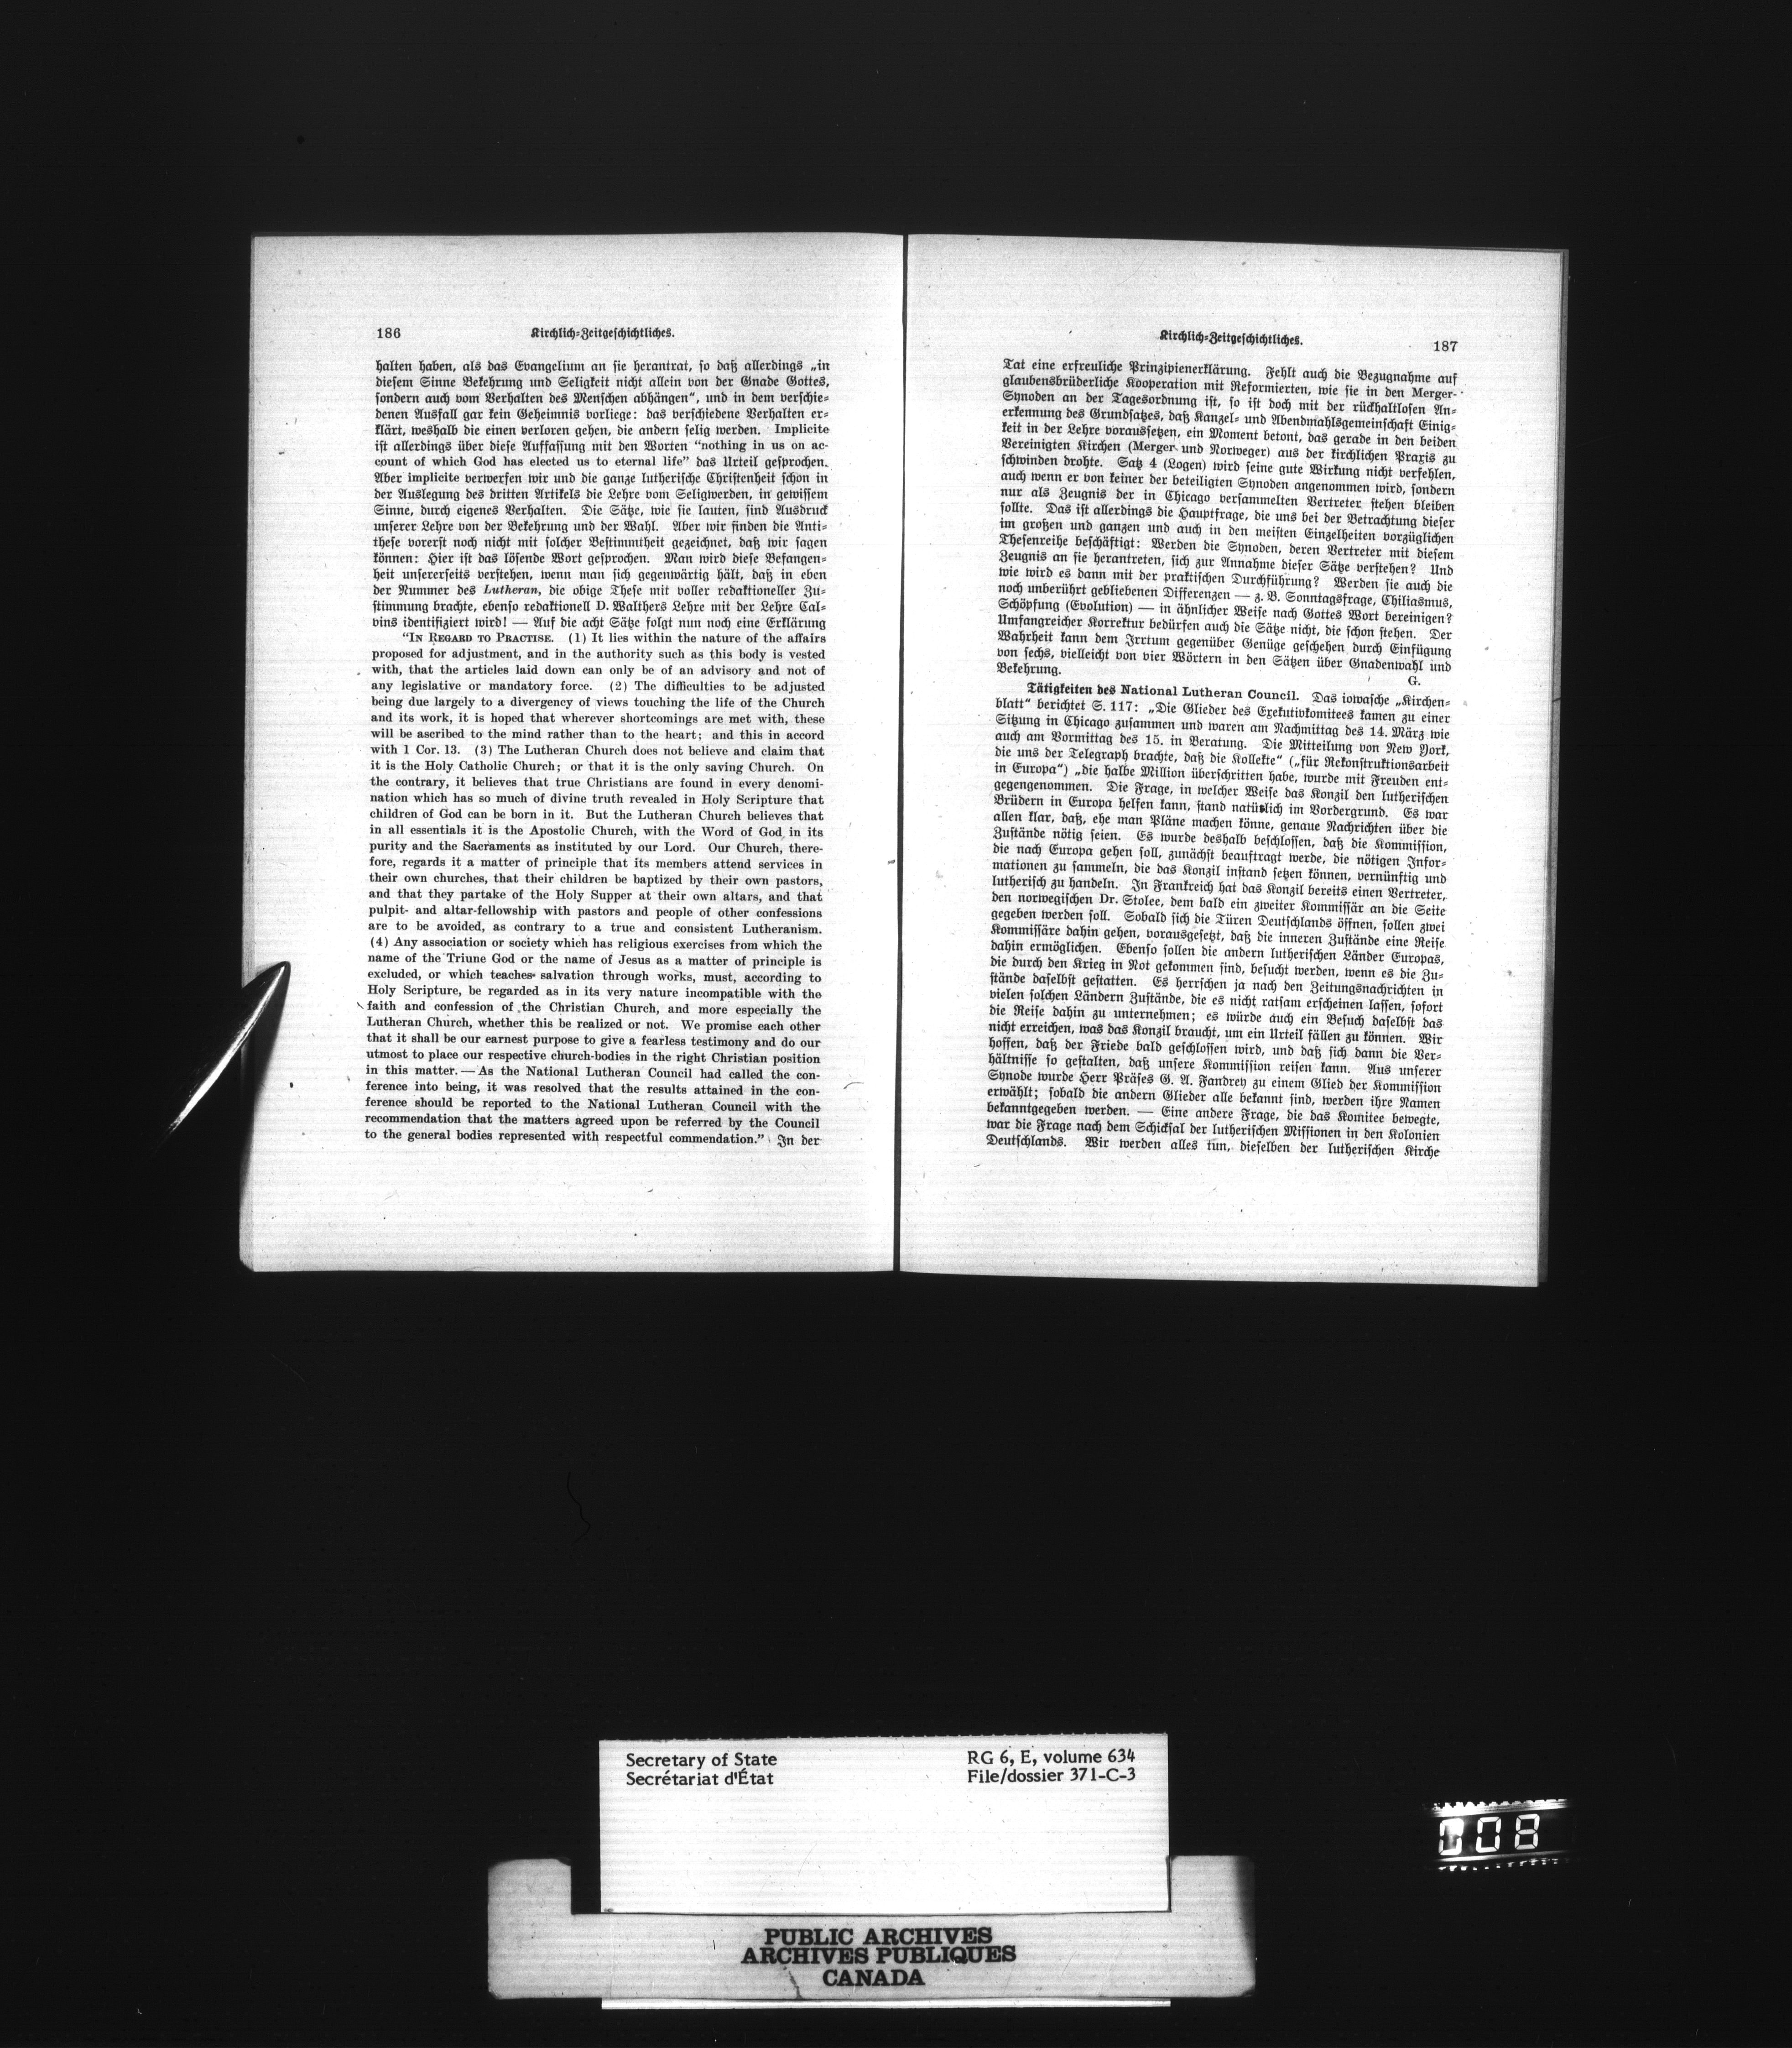 186
Kirchlich-Zeitgeschichtliches.
halten haben, als das Evangelium an sie herantrat, so daß allerdings „in
diesem Sinne Bekehrung und Seligkeit nicht allein von der Gnade Gottes,
sondern auch vom Verhalten des Menschen abhängen“, und in dem verschie-
denen Ausfall gar kein Geheimnis vorliege: das verschiedene Verhalten er-
klärt, weshalb die einen verloren gehen, die andern selig werden. Implicite
ist allerdings über diese Auffassung mit den Worten “nothing in us on ac-
count of which God has elected us to eternal life” das Urteil gesprochen.
Aber implicite verwerfen wir und die ganze lutherische Christenheit schon in
der Auslegung des dritten Artikels die Lehre vom Seligwerden, in gewissem
Sinne, durch eigenes Verhalten. Die Sätze, wie sie lauten, sind Ausdruck
unserer Lehre von der Bekehrung und der Wahl. Aber wir finden die Anti-
these vorerst noch nicht mit solcher Bestimmtheit gezeichnet, daß wir sagen
können: Hier ist das lösende Wort gesprochen. Man wird diese Befangen-
heit unsererseits verstehen, wenn man sich gegenwärtig hält, daß in eben
der Nummer des Lutheran, die obige These mit voller redaktioneller Zu-
stimmung brachte, ebenso redaktionell D. Walthers Lehre mit der Lehre Cal-
vins identifiziert wird! — Auf die acht Sätze folgt nun noch eine Erklärung
“IN REGARD TO PRACTISE. (1) It lies within the nature of the affairs
proposed for adjustment, and in the authority such as this body is vested
with, that the articles laid down can only be of an advisory and not of
any legislative or mandatory force. (2) The difficulties to be adjusted
being due largely to a divergency of views touching the life of the Church
and its work, it is hoped that wherever shortcomings are met with, these
will be ascribed to the mind rather than to the heart; and this in accord
with 1 Cor. 13. (3) The Lutheran Church does not believe and claim that
it is the Holy Catholic Church; or that it is the only saving Church. On
the contrary, it believes that true Christians are found in every denomi-
nation which has so much of divine truth revealed in Holy Scripture that
children of God can be born in it. But the Lutheran Church believes that
in all essentials it is the Apostolic Church, with the Word of God in its
purity and the Sacraments as instituted by our Lord. Our Church, there-
fore, regards it a matter of principle that its members attend services in
their own churches, that their children be baptized by their own pastors,
and that they partake of the Holy Supper at their own altars, and that
pulpit- and altar-fellowship with pastors and people of other confessions
are to be avoided, as contrary to a true and consistent Lutheranism.
(4) Any association or society which has religious exercises from which the
name of the Triune God or the name of Jesus as a matter of principle is
excluded, or which teaches salvation through works, must, according to
Holy Scripture, be regarded as in its very nature incompatible with the
faith and confession of the Christian Church, and more especially the
Lutheran Church, whether this be realized or not. We promise each other
that it shall be our earnest purpose to give a fearless testimony and do our
utmost to place our respective church-bodies in the right Christian position
in this matter. — As the National Lutheran Council had called the con-
ference into being, it was resolved that the results attained in the con-
ference should be reported to the National Lutheran Council with the
recommendation that the matters agreed upon be referred by the Council
to the general bodies represented with respectful commendation.” In der
Kirchlich-Zeitgeschichtliches.
187
Tat eine erfreuliche Prinzipienerklärung. Fehlt auch die Bezugnahme auf
glaubensbrüderliche Kooperation mit Reformierten, wie sie in den Merger-
Synoden an der Tagesordnung ist, so ist doch mit der rückhaltlosen An-
erkennung des Grundsatzes, daß Kanzel- und Abendmahlsgemeinschaft Einig-
keit in der Lehre voraussetzen, ein Moment betont, das gerade in den beiden
Vereinigten Kirchen (Merger und Norweger) aus der kirchlichen Praxis zu
schwinden drohte. Satz 4 (Logen) wird seine gute Wirkung nicht verfehlen,
auch wenn er von keiner der beteiligten Synoden angenommen wird, sondern
nur als Zeugnis der in Chicago versammelten Vertreter stehen bleiben
sollte. Das ist allerdings die Hauptfrage, die uns bei der Betrachtung dieser
im großen und ganzen und auch in den meisten Einzelheiten vorzüglichen
Thesenreihe beschäftigt: Werden die Synoden, deren Vertreter mit diesem
Zeugnis an sie herantreten, sich zur Annahme dieser Sätze verstehen? Und
wie wird es dann mit der praktischen Durchführung? Werden sie auch die
noch unberührt gebliebenen Differenzen — z. B. Sonntagsfrage, Chiliasmus,
Schöpfung (Evolution) — in ähnlicher Weise nach Gottes Wort bereinigen?
Umfangreicher Korrektur bedürfen auch die Sätze nicht, die schon stehen. Der
Wahrheit kann dem Irrtum gegenüber Genüge geschehen durch Einfügung
von sechs, vielleicht von vier Wörtern in den Sätzen über Gnadenwahl und
Bekehrung.
G.
Tätigkeiten des National Lutheran Council. Das iowasche „Kirchen-
blatt“ berichtet S. 117: „Die Glieder des Exekutivkomitees kamen zu einer
Sitzung in Chicago zusammen und waren am Nachmittag des 14. März wie
auch am Vormittag des 15. in Beratung. Die Mitteilung von New York,
die uns der Telegraph brachte, daß die Kollekte“ („für Rekonstruktionsarbeit
in Europa“) „die halbe Million überschritten habe, wurde mit Freuden ent-
gegengenommen. Die Frage, in welcher Weise das Konzil den lutherischen
Brüdern in Europa helfen kann, stand natürlich im Vordergrund. Es war
allen klar, daß, ehe man Pläne machen könne, genaue Nachrichten über die
Zustände nötig seien. Es wurde deshalb beschlossen, daß die Kommission,
die nach Europa gehen soll, zunächst beauftragt werde, die nötigen Infor-
mationen zu sammeln, die das Konzil instand setzen können, vernünftig und
lutherisch zu handeln. In Frankreich hat das Konzil bereits einen Vertreter,
den norwegischen Dr. Stolee, dem bald ein zweiter Kommissär an die Seite
gegeben werden soll. Sobald sich die Türen Deutschlands öffnen, sollen zwei
Kommissäre dahin gehen, vorausgesetzt, daß die inneren Zustände eine Reise
dahin ermöglichen. Ebenso sollen die andern lutherischen Länder Europas,
die durch den Krieg in Not gekommen sind, besucht werden, wenn es die Zu-
stände daselbst gestatten. Es herrschen ja nach den Zeitungsnachrichten in
vielen solchen Ländern Zustände, die es nicht ratsam erscheinen lassen, sofort
die Reise dahin zu unternehmen; es würde auch ein Besuch daselbst das
nicht erreichen, was das Konzil braucht, um ein Urteil fällen zu können. Wir
hoffen, daß der Friede bald geschlossen wird, und daß sich dann die Ver-
hältnisse so gestalten, daß unsere Kommission reisen kann. Aus unserer
Synode wurde Herr Präses G. A. Fandrey zu einem Glied der Kommission
erwählt; sobald die andern Glieder alle bekannt sind, werden ihre Namen
bekanntgegeben werden. — Eine andere Frage, die das Komitee bewegte,
war die Frage nach dem Schicksal der lutherischen Missionen in den Kolonien
Deutschlands. Wir werden alles tun, dieselben der lutherischen Kirche
Secretary of State
Secrétariat d'État
RG 6, E, volume 634
File/dossier 371-C-3
008
PUBLIC ARCHIVES
ARCHIVES PUBLIQUES
CANADA